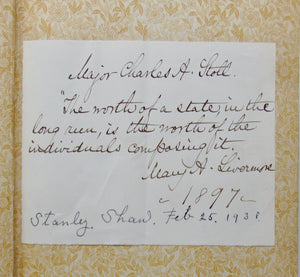 Major Charles A. Stott.
"The worth of a state, in the
long run, is the worth of the
individuals composing it.
Mary A. Livermore
1897
Stanley Shaw. Feb 25, 1938